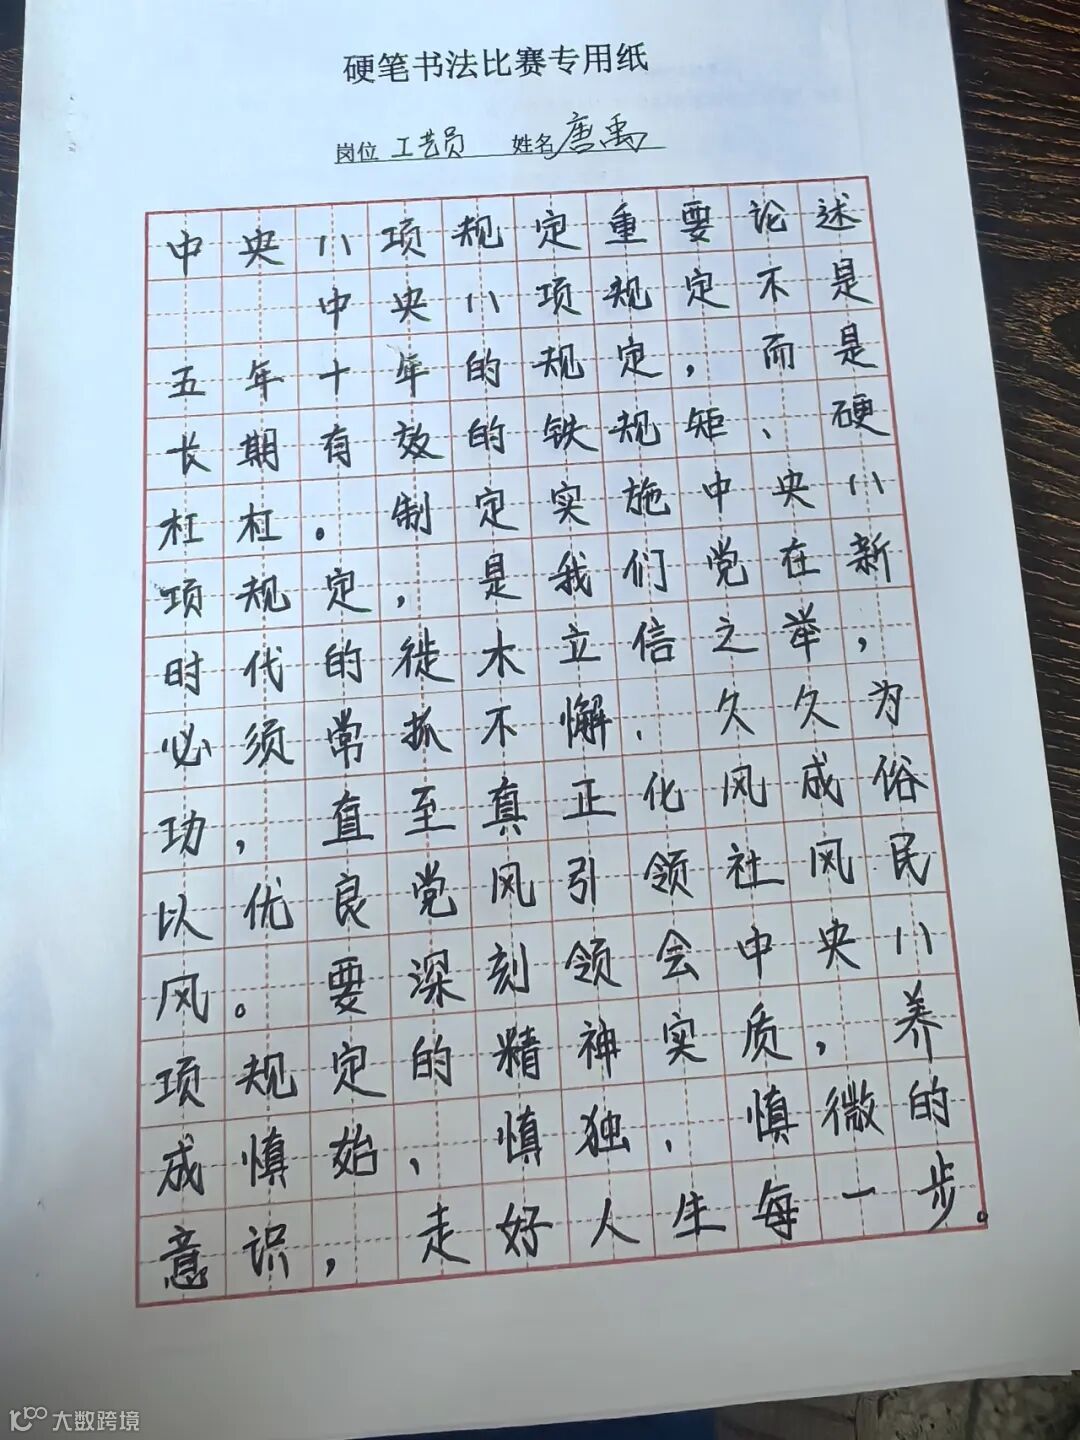 硬笔书法比赛专用纸
岗位 工艺员 姓名 唐禹
中央八项规定重要论述
中央八项规定不是
五年十年的规定，而是
长期有效的铁规矩、硬
杠杠。制定实施中央八
项规定，是我们党在新
时代的徙木立信之举，
必须常抓不懈、久久为
功，直至真正化风成俗
以优良党风引领社风民
风。要深刻领会中央八
项规定的精神实质，养
成慎始、慎独、慎微的
意识，走好人生每一步。
大数跨境